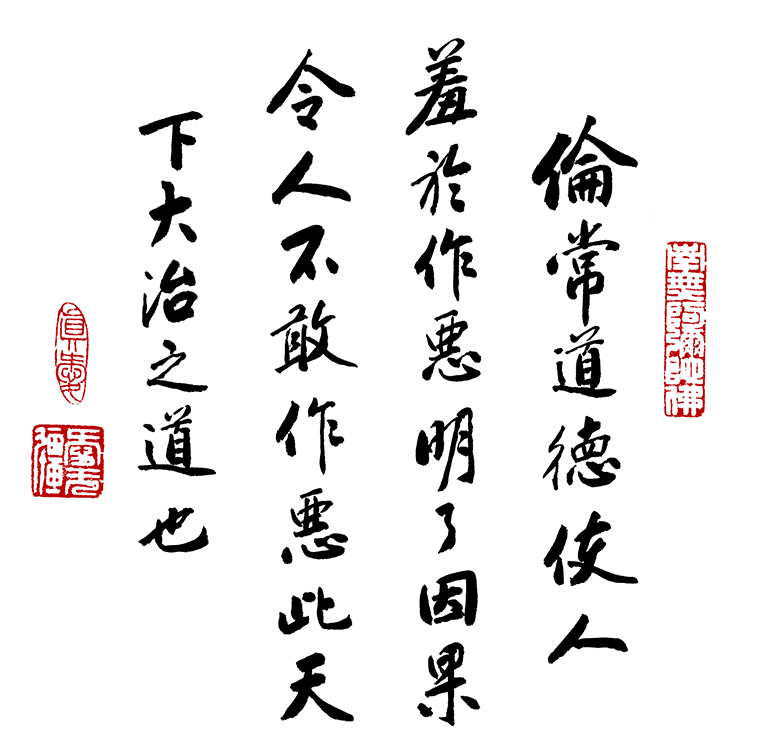 南無阿彌陀佛
倫常道德使人
羞於作惡明了因果
令人不敢作惡此天
下大治之道也